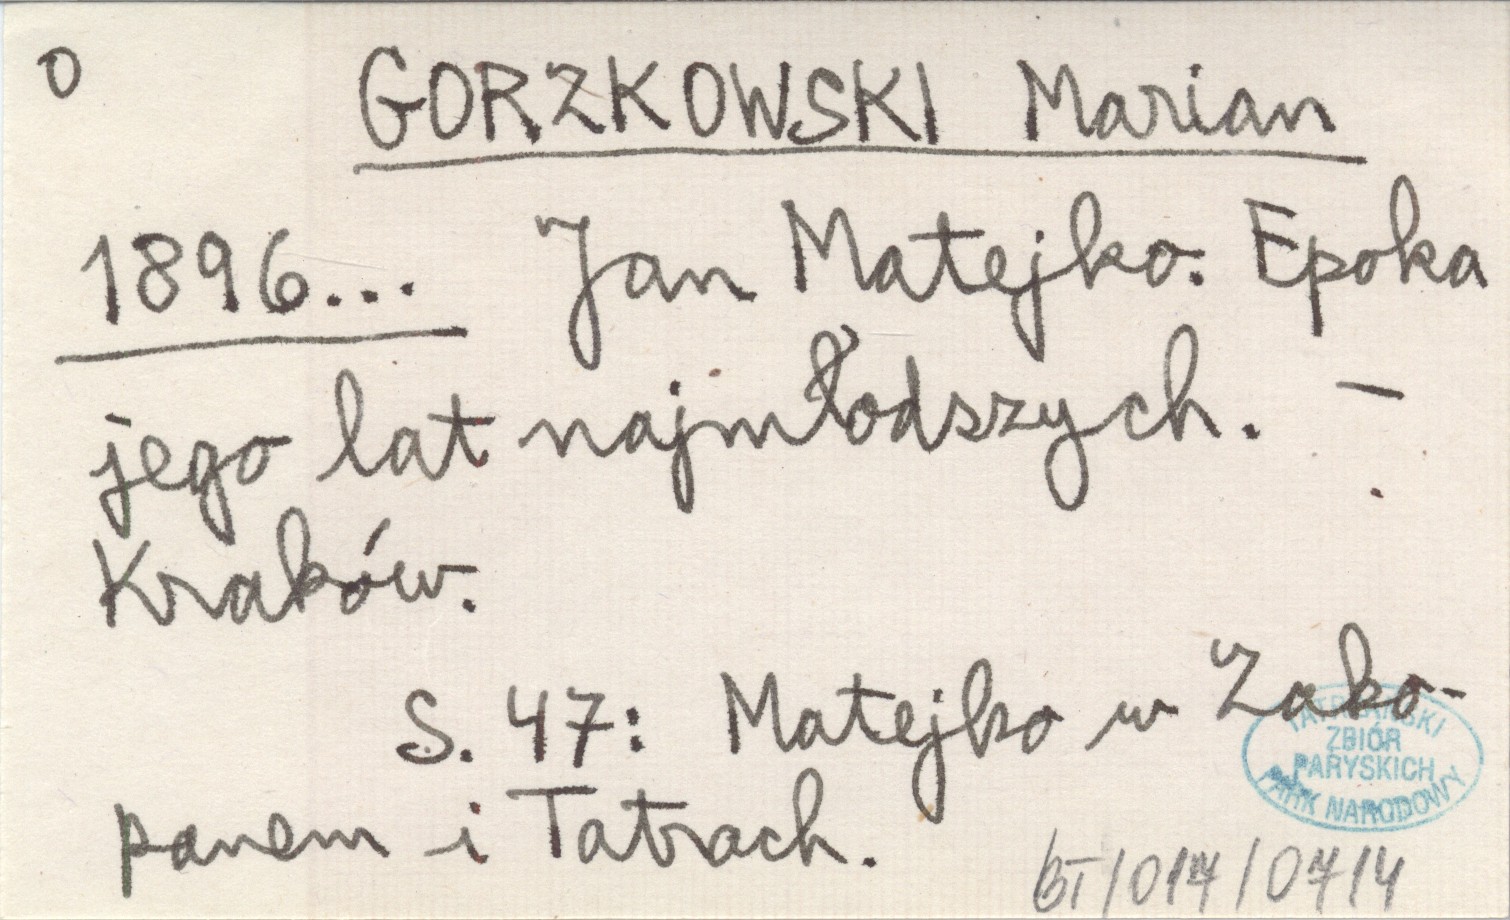 o
GORZKOWSKI Marian
1896... Jan Matejko. Epoka
jego lat najmłodszych. —
Kraków.
S. 47: Matejko w Zako-
panem i Tatrach.
TATRZAŃSKI
ZBIÓR
PARYSKICH
PARK NARODOWY
BT/017/0714